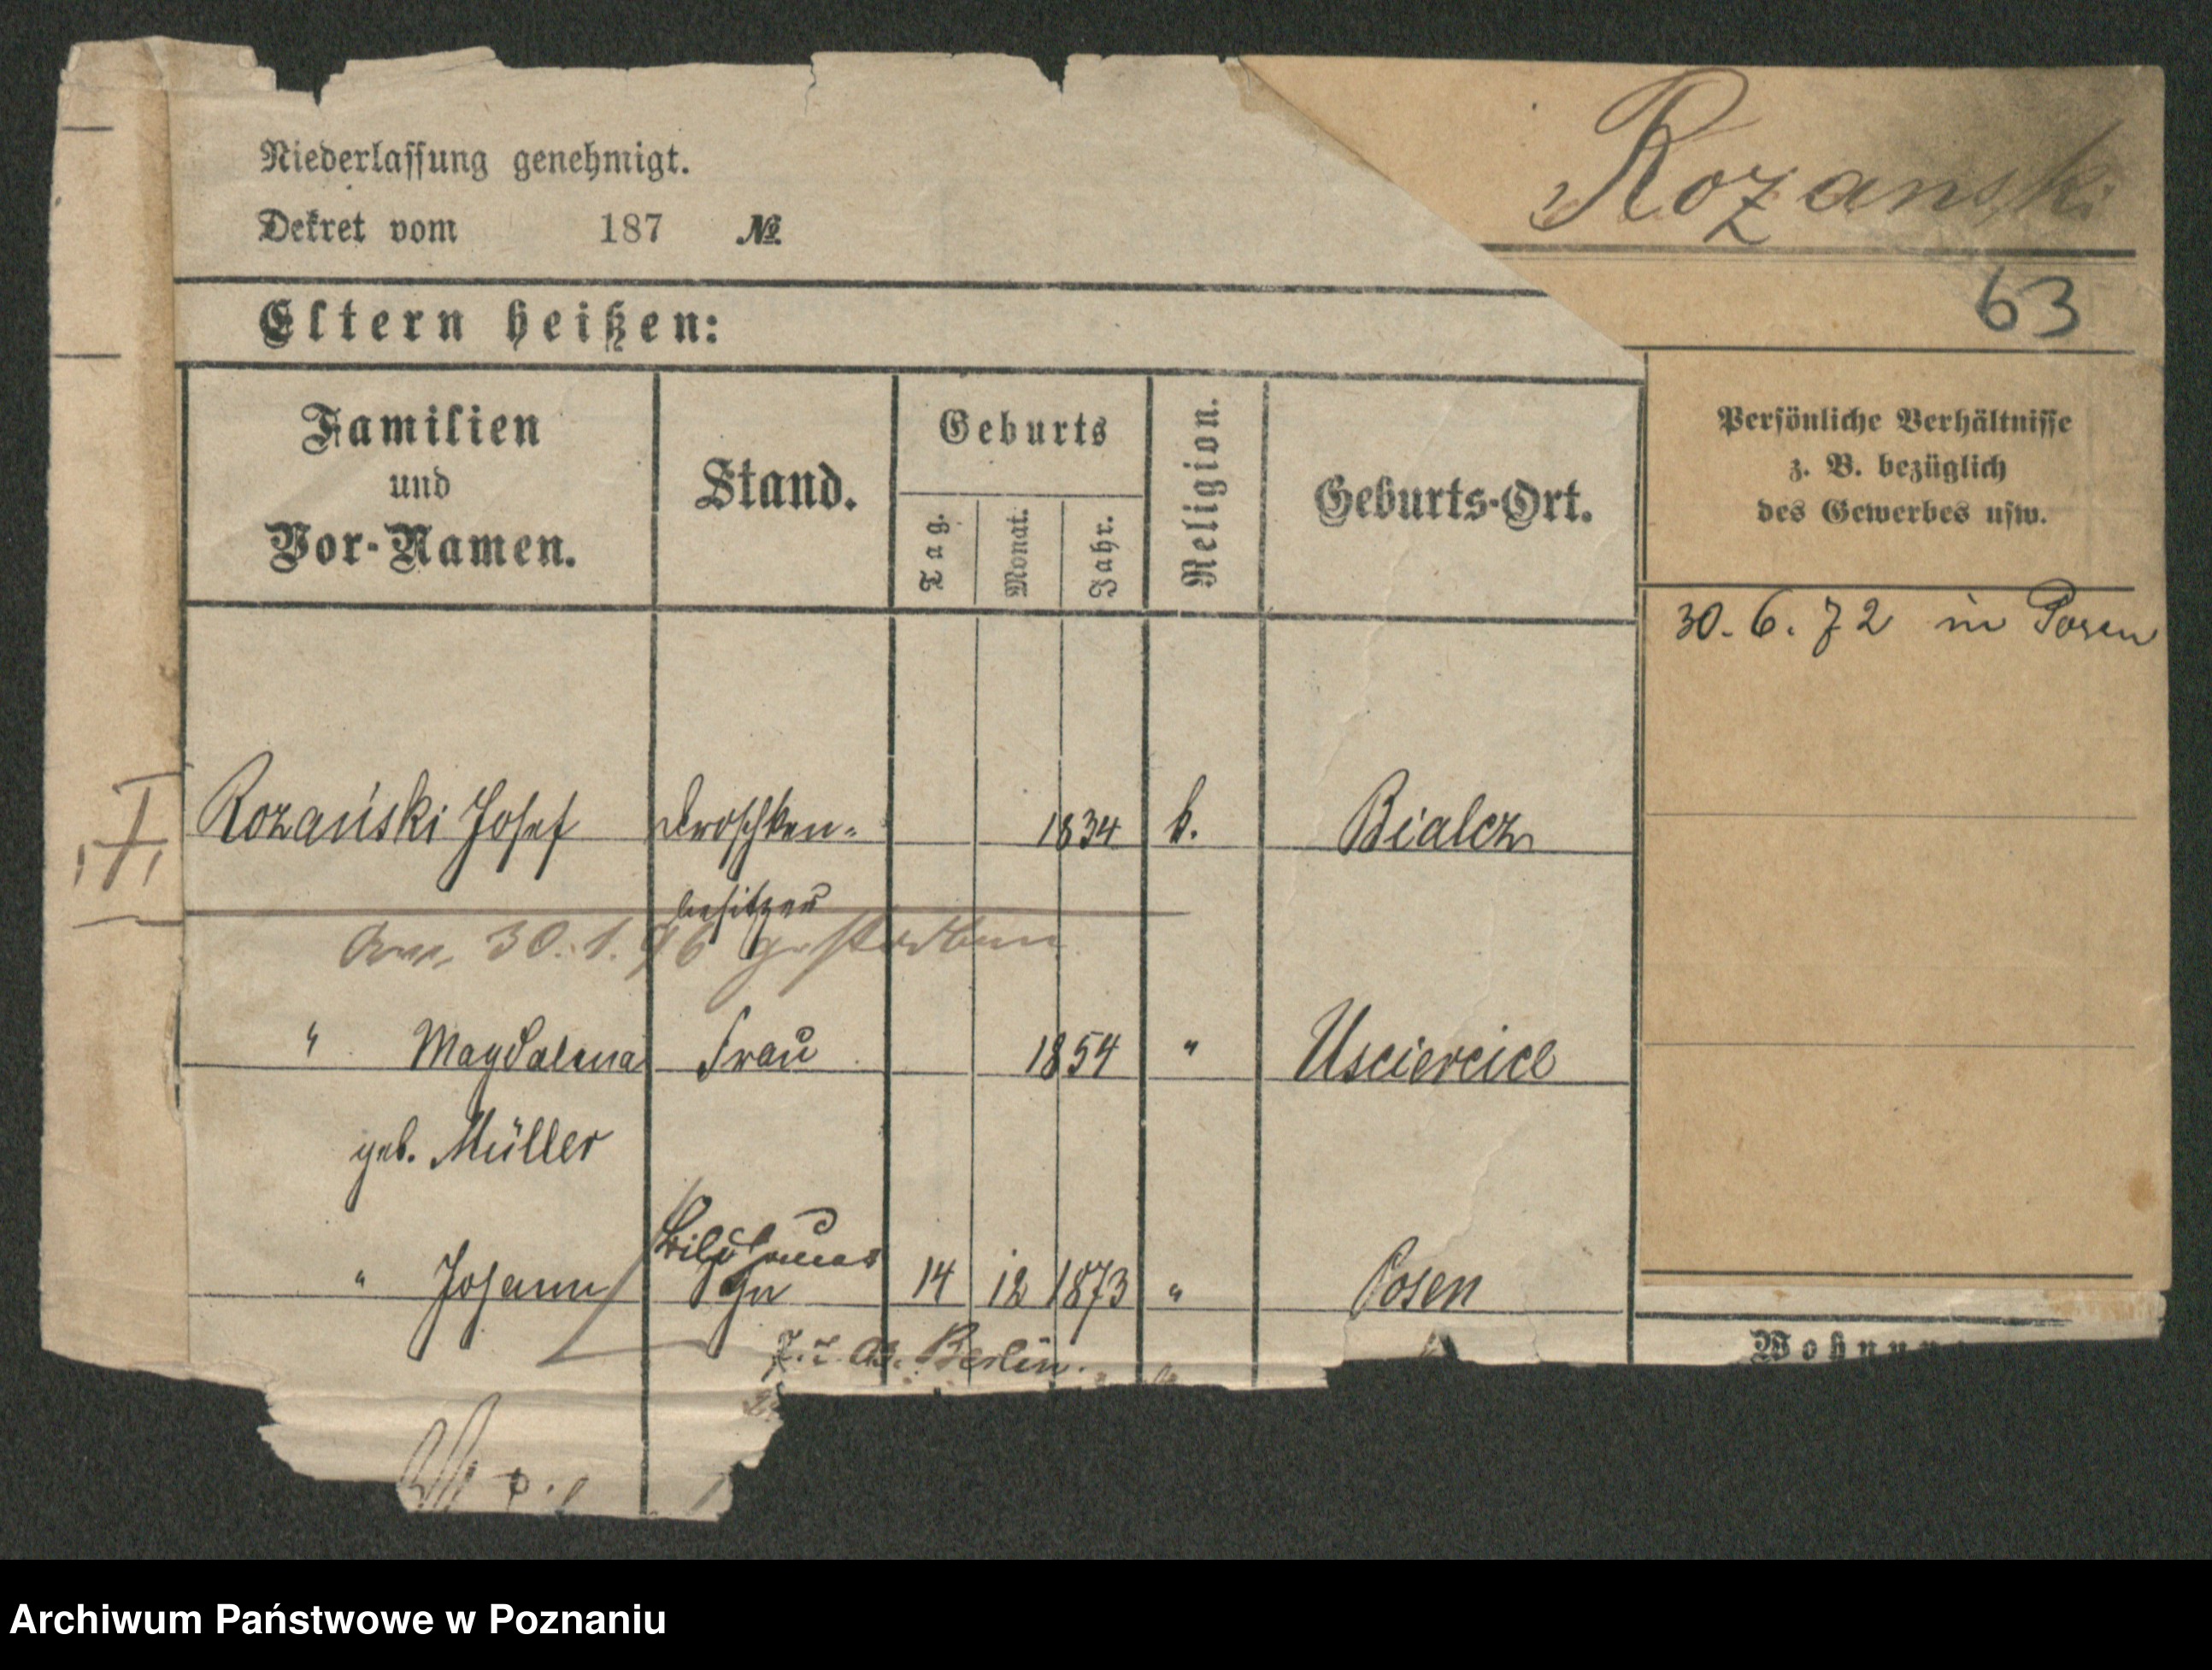 Niederlassung genehmigt.
Dekret vom 187 №
Rozanski
63
Eltern heißen:
Familien
und
Vor-Namen.
Stand.
Geburts
Tag.
Monat.
Jahr.
Religion.
Geburts-Ort.
Persönliche Verhältnisse
z. B. bezüglich
des Gewerbes usw.
30. 6. 72 in Posen
Rozański Josef Droschken- 1834 k. Bialcz
besitzer
Am 30. 1. 96 gestorben
" Magdalena Frau 1854 " Usciercice
geb. Müller
Bildhauer
" Johann Sohn 14 12 1873 " Posen
Berlin.
Wohnung
Archiwum Państwowe w Poznaniu